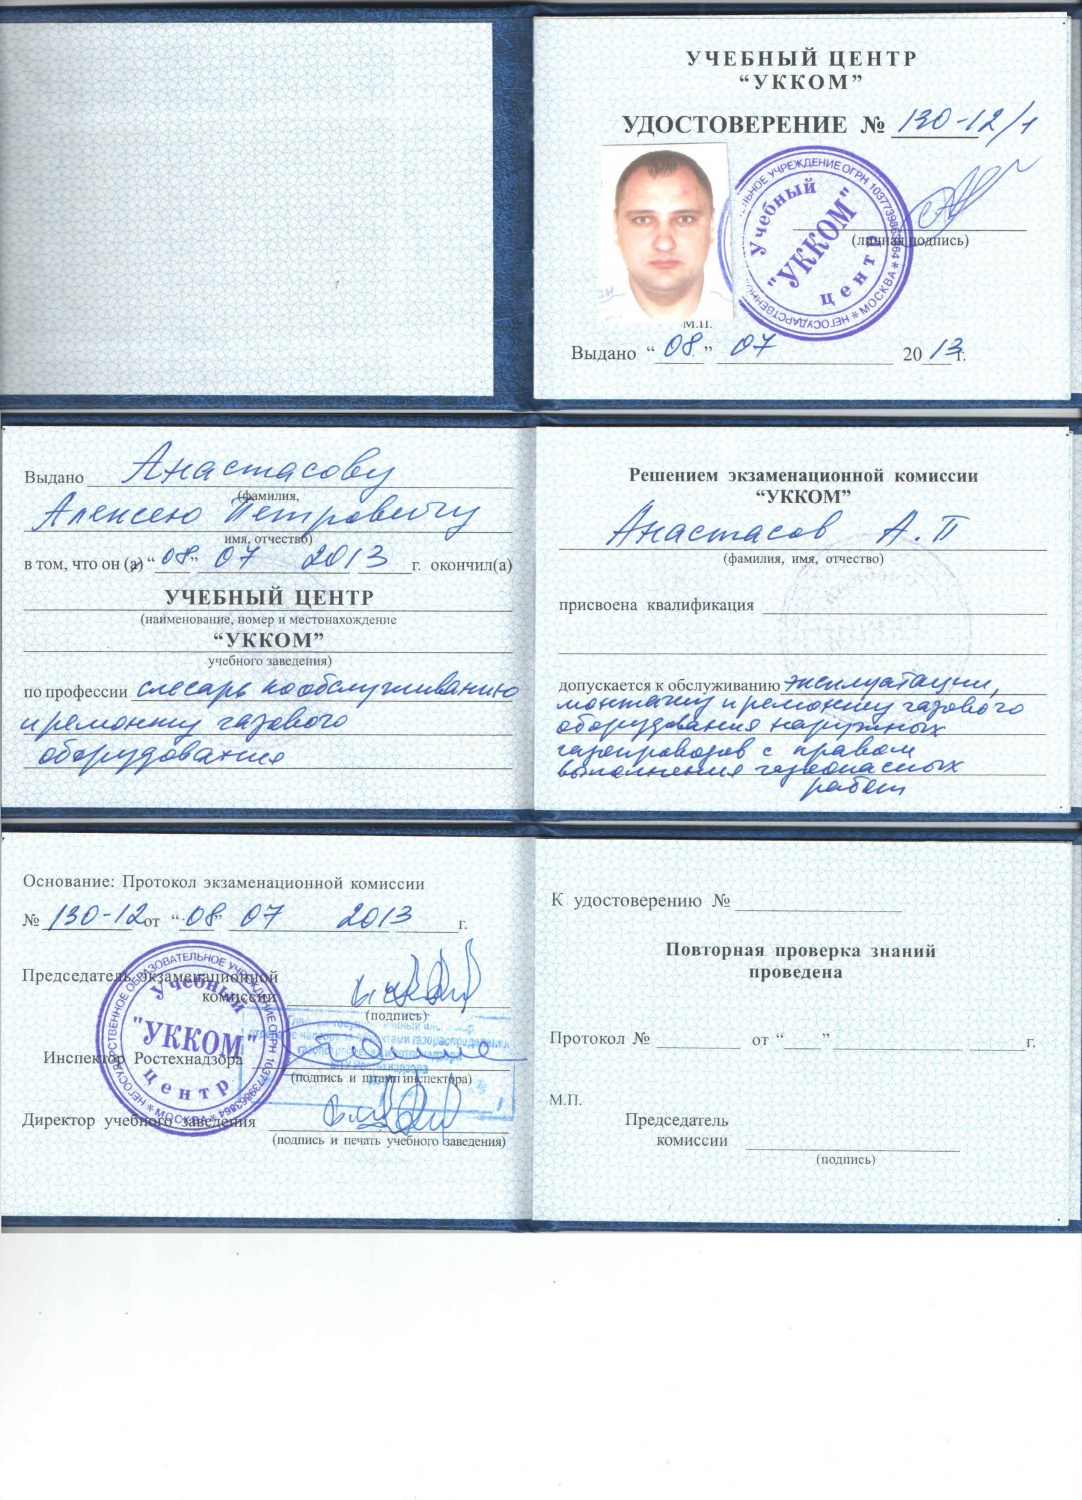 УЧЕБНЫЙ ЦЕНТР
“УККОМ”
УДОСТОВЕРЕНИЕ № 130-12/1
НЕГОСУДАРСТВЕННОЕ ОБРАЗОВАТЕЛЬНОЕ УЧРЕЖДЕНИЕ ОГРН 1037739863864 * МОСКВА *
Учебный
"УККОМ"
центр
(личная подпись)
М.П.
Выдано “08” 07 2013 г.
Выдано Анастасову
(фамилия,
Алексею Петровичу
имя, отчество)
в том, что он (а) “08” 07 2013 г. окончил(а)
УЧЕБНЫЙ ЦЕНТР
(наименование, номер и местонахождение
“УККОМ”
учебного заведения)
по профессии слесарь по обслуживанию
и ремонту газового
оборудования
Решением экзаменационной комиссии
“УККОМ”
Анастасов А.П
(фамилия, имя, отчество)
присвоена квалификация
допускается к обслуживанию эксплуатации,
монтажу и ремонту газового
оборудования наружных
газопроводов с правом
выполнения газоопасных
работ
Основание: Протокол экзаменационной комиссии
№ 130-12 от “08” 07 2013 г.
Председатель экзаменационной
комиссии
(подпись)
Инспектор Ростехнадзора
(подпись и штамп инспектора)
Директор учебного заведения
(подпись и печать учебного заведения)
НЕГОСУДАРСТВЕННОЕ ОБРАЗОВАТЕЛЬНОЕ УЧРЕЖДЕНИЕ ОГРН 1037739863864 * МОСКВА *
Учебный
"УККОМ"
центр
К удостоверению №
Повторная проверка знаний
проведена
Протокол № от “ ” г.
М.П.
Председатель
комиссии
(подпись)